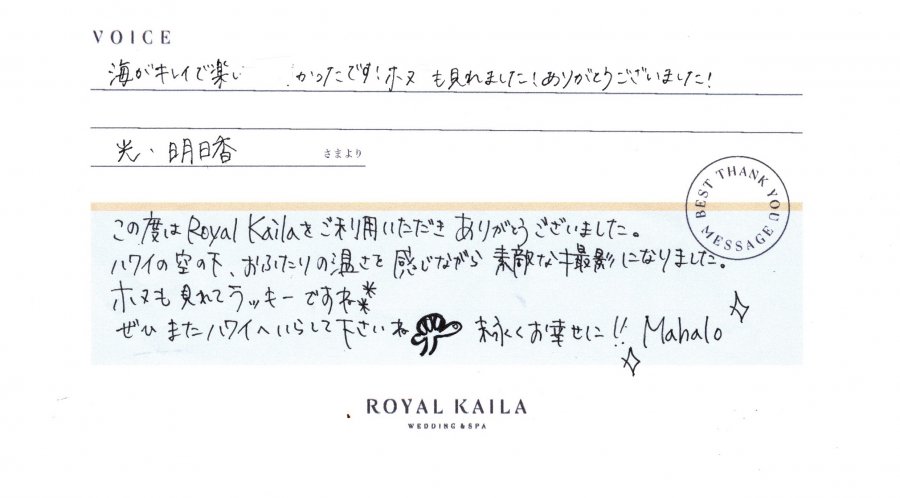 VOICE
海がキレイで楽し かったです！ホヌ も見れました！ありがとうございました！
光・明日香 さまより
BEST THANK YOU MESSAGE
この度は Royal Kailaをご利用いただき ありがとうございました。
ハワイの空の下、おふたりの温さを 感じながら 素敵な撮影になりました。
ホヌも見れてラッキーですね**
ぜひ またハワイへいらして下さいね 末永くお幸せに!! Mahalo
ROYAL KAILA
WEDDING & SPA